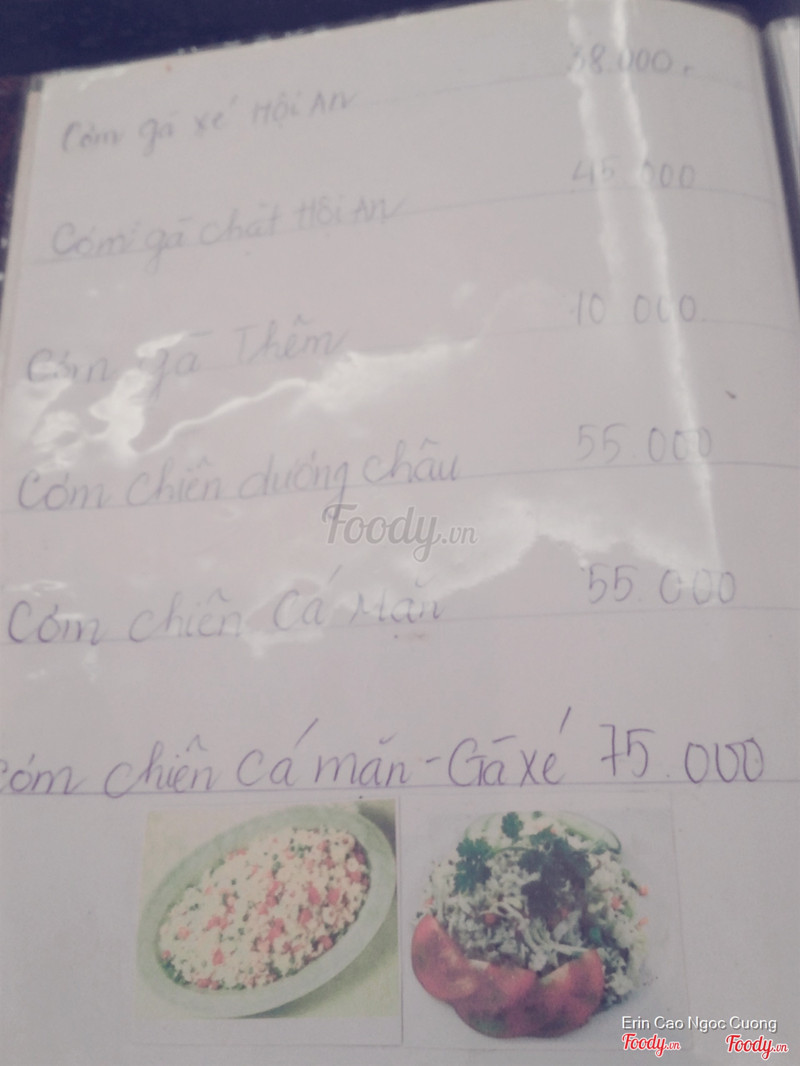 Cơm gà xé Hội An 38.000
Cơm gà chặt Hội An 45 000
Cơm gà Thêm 10 000
Cơm chiên dương châu 55.000
Cơm chiên Cá Mặn 55.000
Cơm chiên Cá mặn - Gà xé 75.000
Foody.vn
Erin Cao Ngoc Cuong
Foody.vn Foody.vn